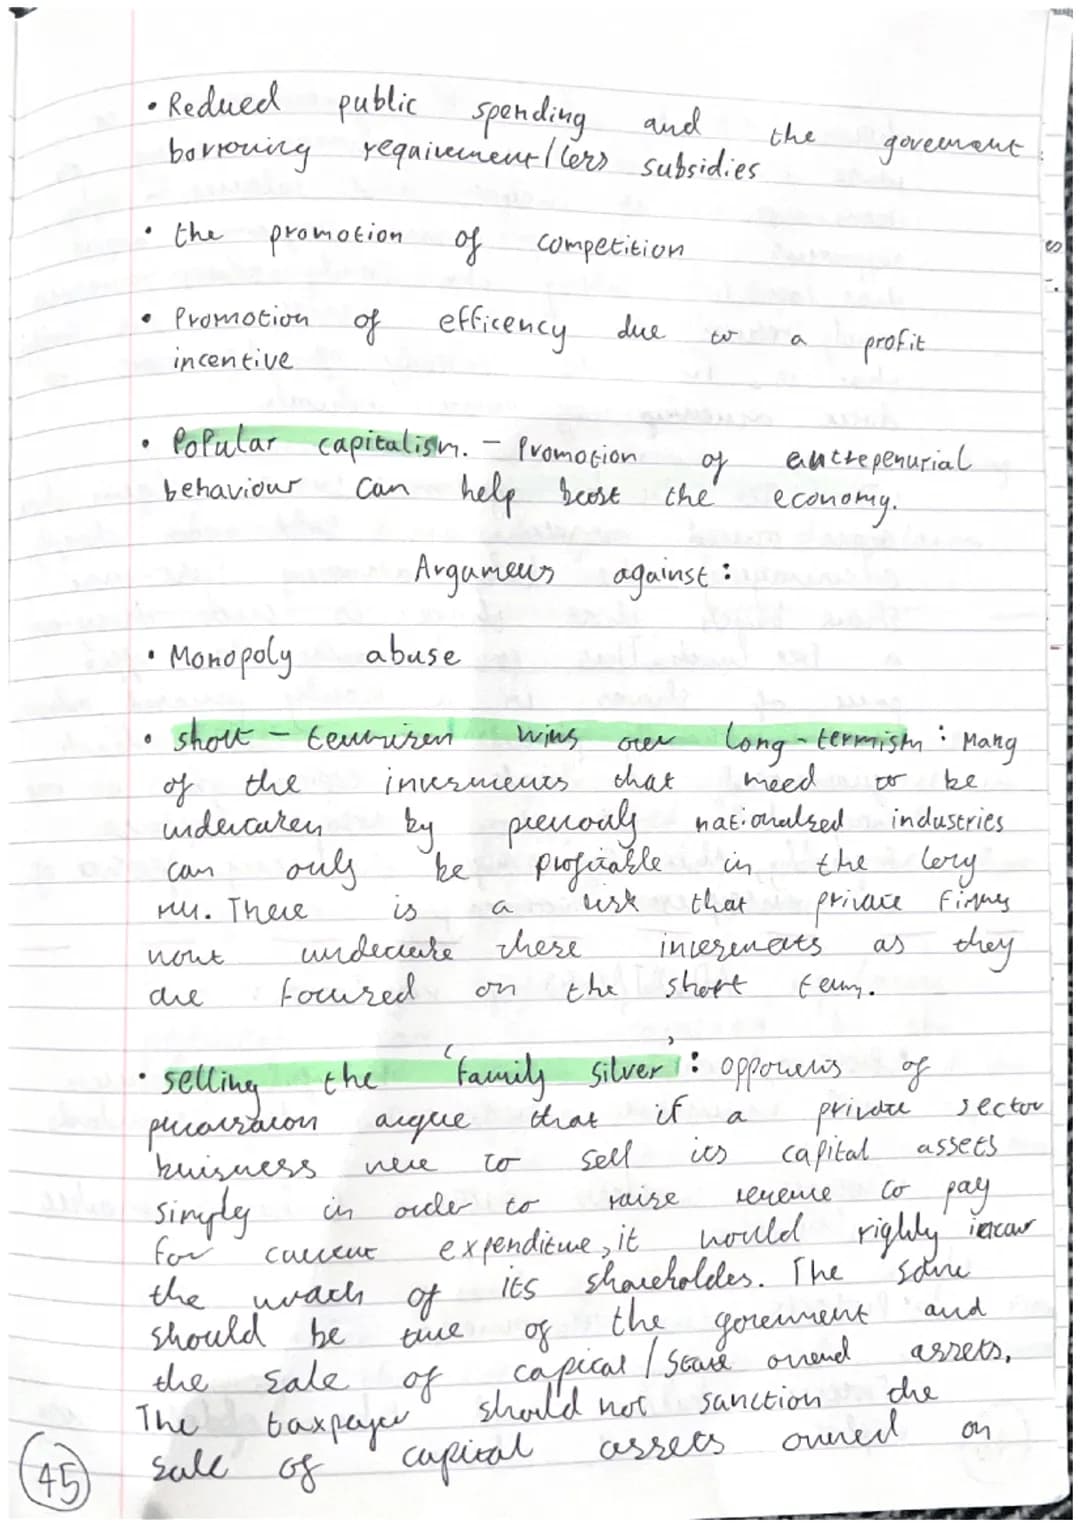 • Reduced public spending and the goverment
borrowing requirement/less subsidies
• the promotion of competition
• Promotion of efficency due to a profit
incentive
• Popular capitalism. - Promotion of entrepenurial
behaviour can help boost the economy.
Arguments against:
• Monopoly abuse
• short-termism wins over long-termism: Many
of the invesments that need to be
undertaken by previously nationalised industries
can only be profitable in the long
run. There is a risk that private firms
wont undertake these invesments as they
are focused on the short term.
• selling the 'family silver': opponents of
privatisation argue that if a private sector
buisness were to sell its capital assets
simply in order to raise revenue to pay
for current expenditure, it would rightly incur
the wrath of its shareholdes. The same
should be true of the government and
the sale of capital/state owned assets.
The taxpayer should not sanction the
sale of capital assets owned on
45